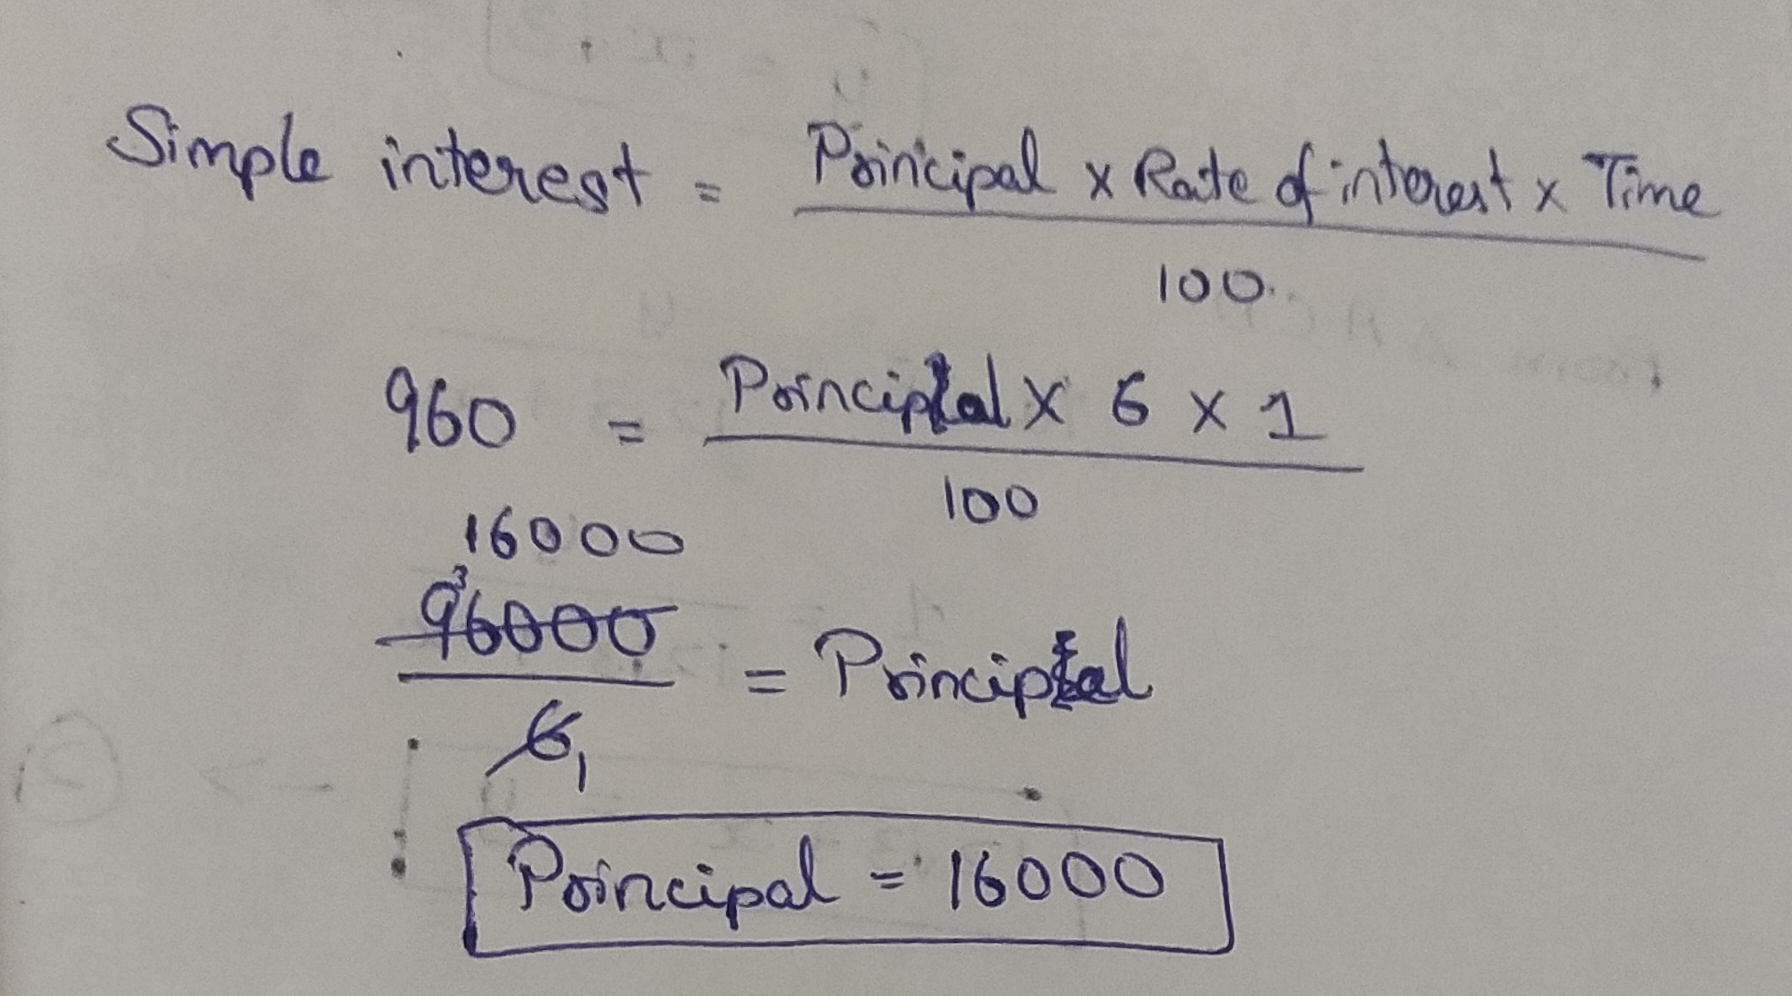 Simple interest = Principal x Rate of interest x Time
100
960 = Principal x 6 x 1
100
16000
96000 = Principal
6 1
Principal = 16000